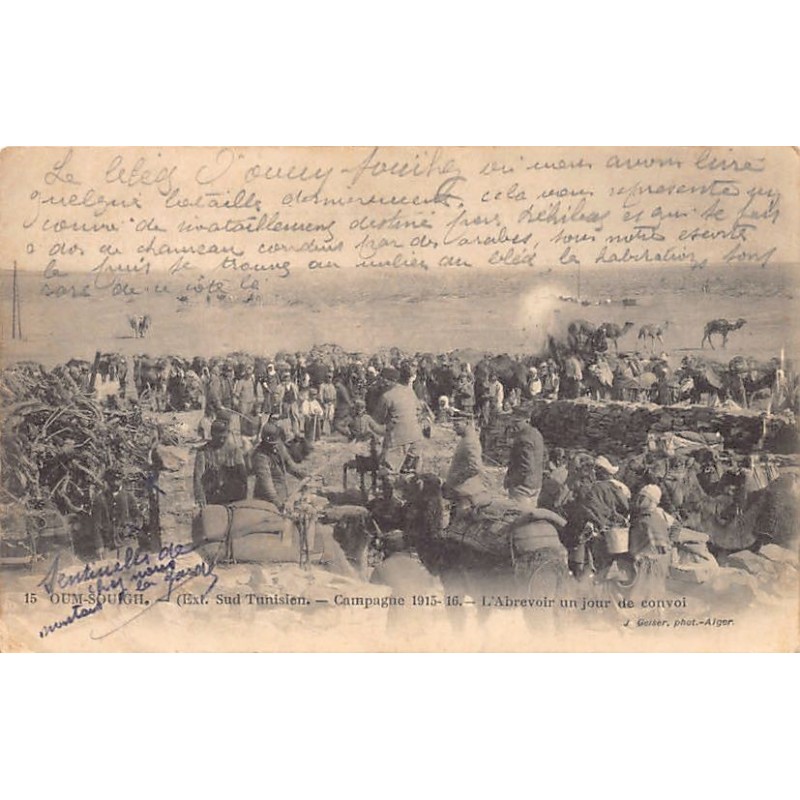 Le bled d'oumy souikh où nous avons livré
quelque bataille dernièrement, cela vous représente un
convoi de ravitaillement destiné pour Déhibat et qui se fait
a dos de chameau conduis par des arabes, sous notre escorte
le puis se trouve au milieu du bled la habitations sont
de ce côté là
Sentinelle de
chez nous
montant la garde
15 OUM-SOUIGH. — (Ext. Sud Tunisien. — Campagne 1915-16. — L'Abrevoir un jour de convoi
J. Geiser, phot.-Alger.